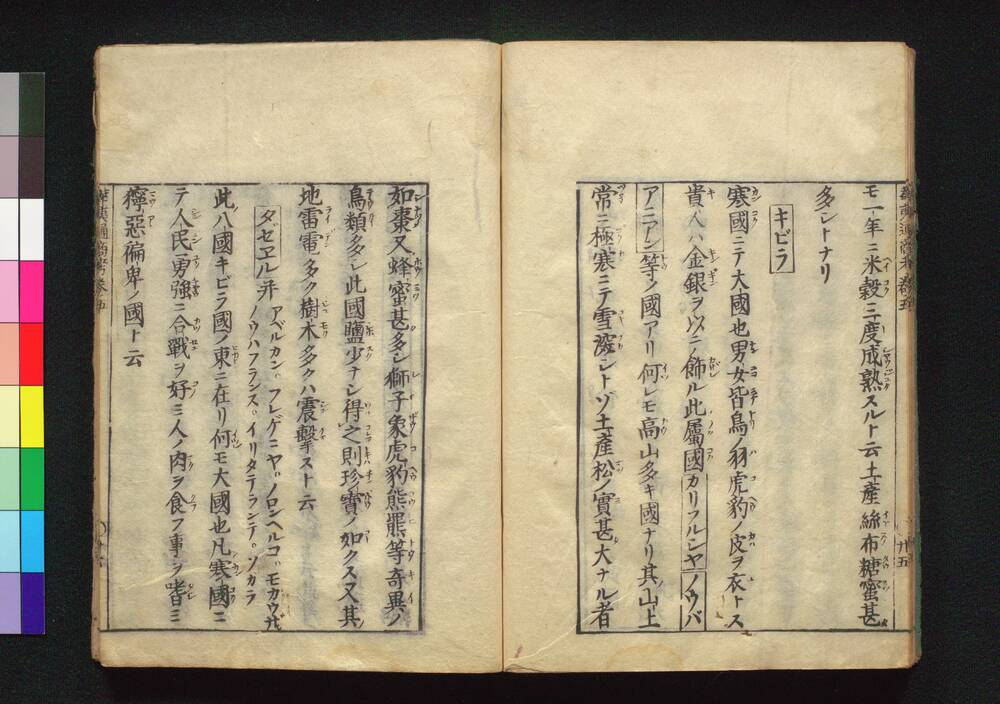 モ一年ニ米穀三度成熟スルト云土産絲布糖蜜甚
多シトナリ
キビラ
寒國ニテ大國也男女皆鳥ノ羽虎豹ノ皮ヲ衣トス
貴人ハ金銀ヲ以テ飾ル此屬國カリフルシヤノウバ
アニアン等ノ國アリ何レモ高山多キ國ナリ其山上
常ニ極寒ニテ雪深シトソ土産松ノ實甚大ナル者
如棗又蜂蜜甚多シ獅子象虎豹熊羆等奇異ノ
鳥類多シ此國鹽少ナシ得之則珍寶ノ如クス又其
地雷電多ク樹木多クハ震擊スト云
タゼエル并アベルカン。フレゲニヤ。ノロンヘルコ。モカウサ
ノウハフランス。イリタテランテ。ソカラ
此八國キビラ國ノ東ニ在リ何モ大國也凡寒國ニ
テ人民勇強ニ合戰ヲ好ミ人ノ肉ヲ食フ事ヲ嗜ミ
獰惡偏卑ノ國ト云
華夷通商考卷五
廿五